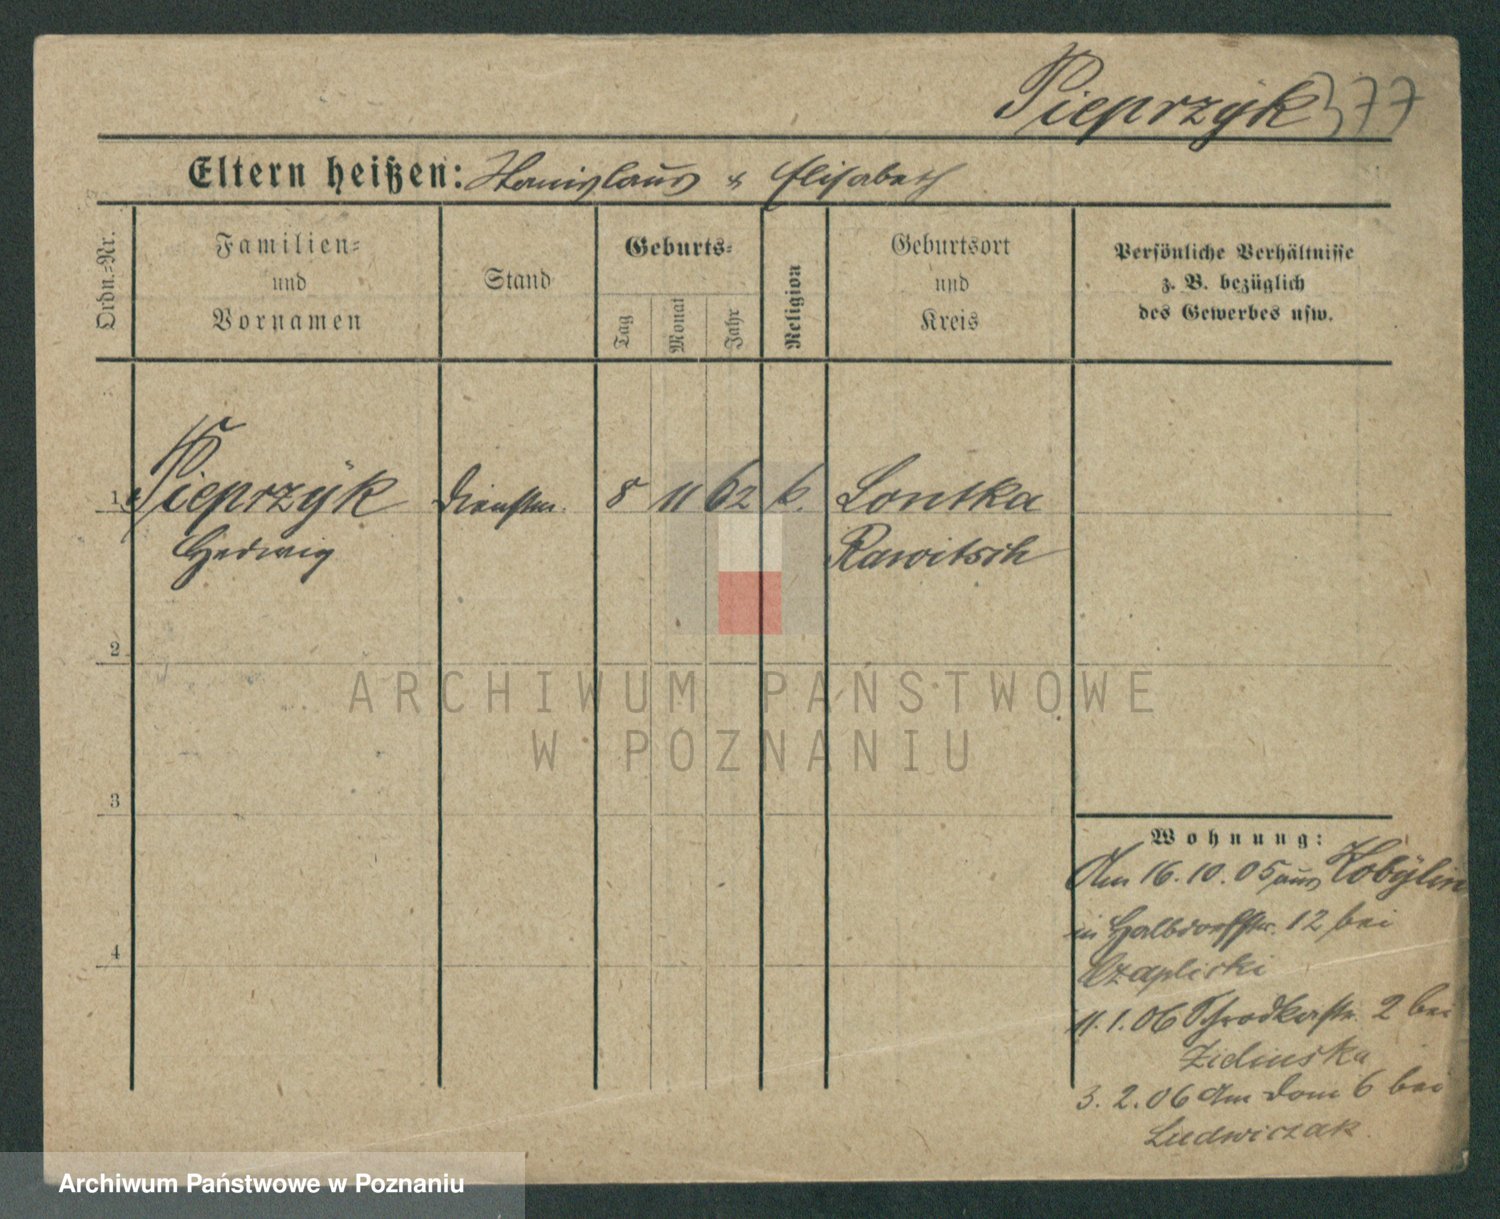 Pieprzÿk 377
Eltern heißen: Stanislaus & Elisabeth
Ordn.-Nr.
Familien-
und
Vornamen
Stand
Geburts-
Tag
Monat
Jahr
Religion
Geburtsort
und
Kreis
Persönliche Verhältnisse
z. B. bezüglich
des Gewerbes usw.
1 Pieprzÿk Dienstm. 8 11 62 k. Lontka
Hedwig Rawitsch
2
3
4
Wohnung:
Am 16. 10. 05 aus Kobÿlin
in Halbdorfstr. 12 bei
Czapliski
11. 1. 06 Schrodkerstr. 2 bei
3. 2. 06 Am Dom 6 bei
Ludwiczak
ARCHIWUM PAŃSTWOWE
W POZNANIU
Archiwum Państwowe w Poznaniu